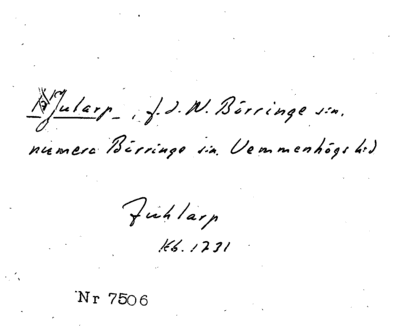 Jularp, f.d. N. Börringe sn.
numera Börringe sn. Vemmenhögs hd
Juhlarp
Kb. 1731
Nr 7506